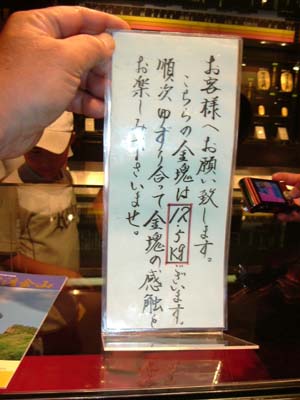 お客様へお願い致します。
こちらの金塊は12.5kgございます。
順次ゆずり合って金塊の感触を
お楽しみ下さいませ。
金山